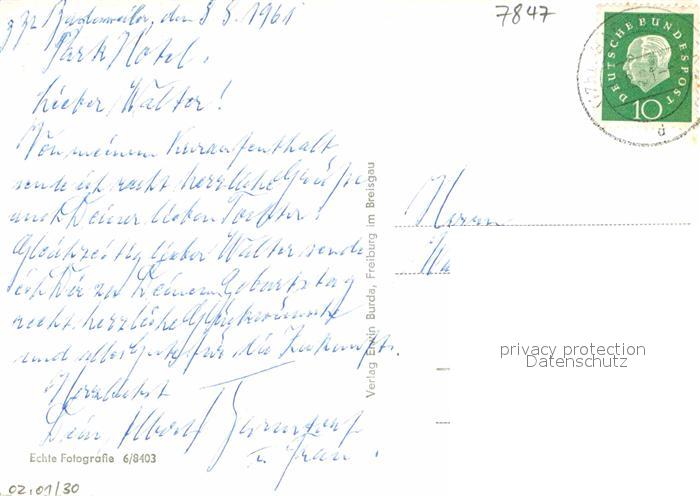 z. Zt. Badenweiler, den 5. 8. 1961
Park Hotel.
Lieber Walter!
Von meinem Kuraufenthalt
sende ich recht herzliche Grüße
auch Deiner lieben Tochter!
Gleichzeitig lieber Walter sende
ich Dir zu Deinem Geburtstag
recht herzliche Glückwünsche
und alles Gute für die Zukunft.
Herzlichst
Dein Albert
u. Frau.
Echte Fotografie 6/8403
02.01/30
Verlag Erwin Burda, Freiburg im Breisgau
7847
DEUTSCHE BUNDESPOST
10
d
Herrn
Wa
privacy protection
Datenschutz